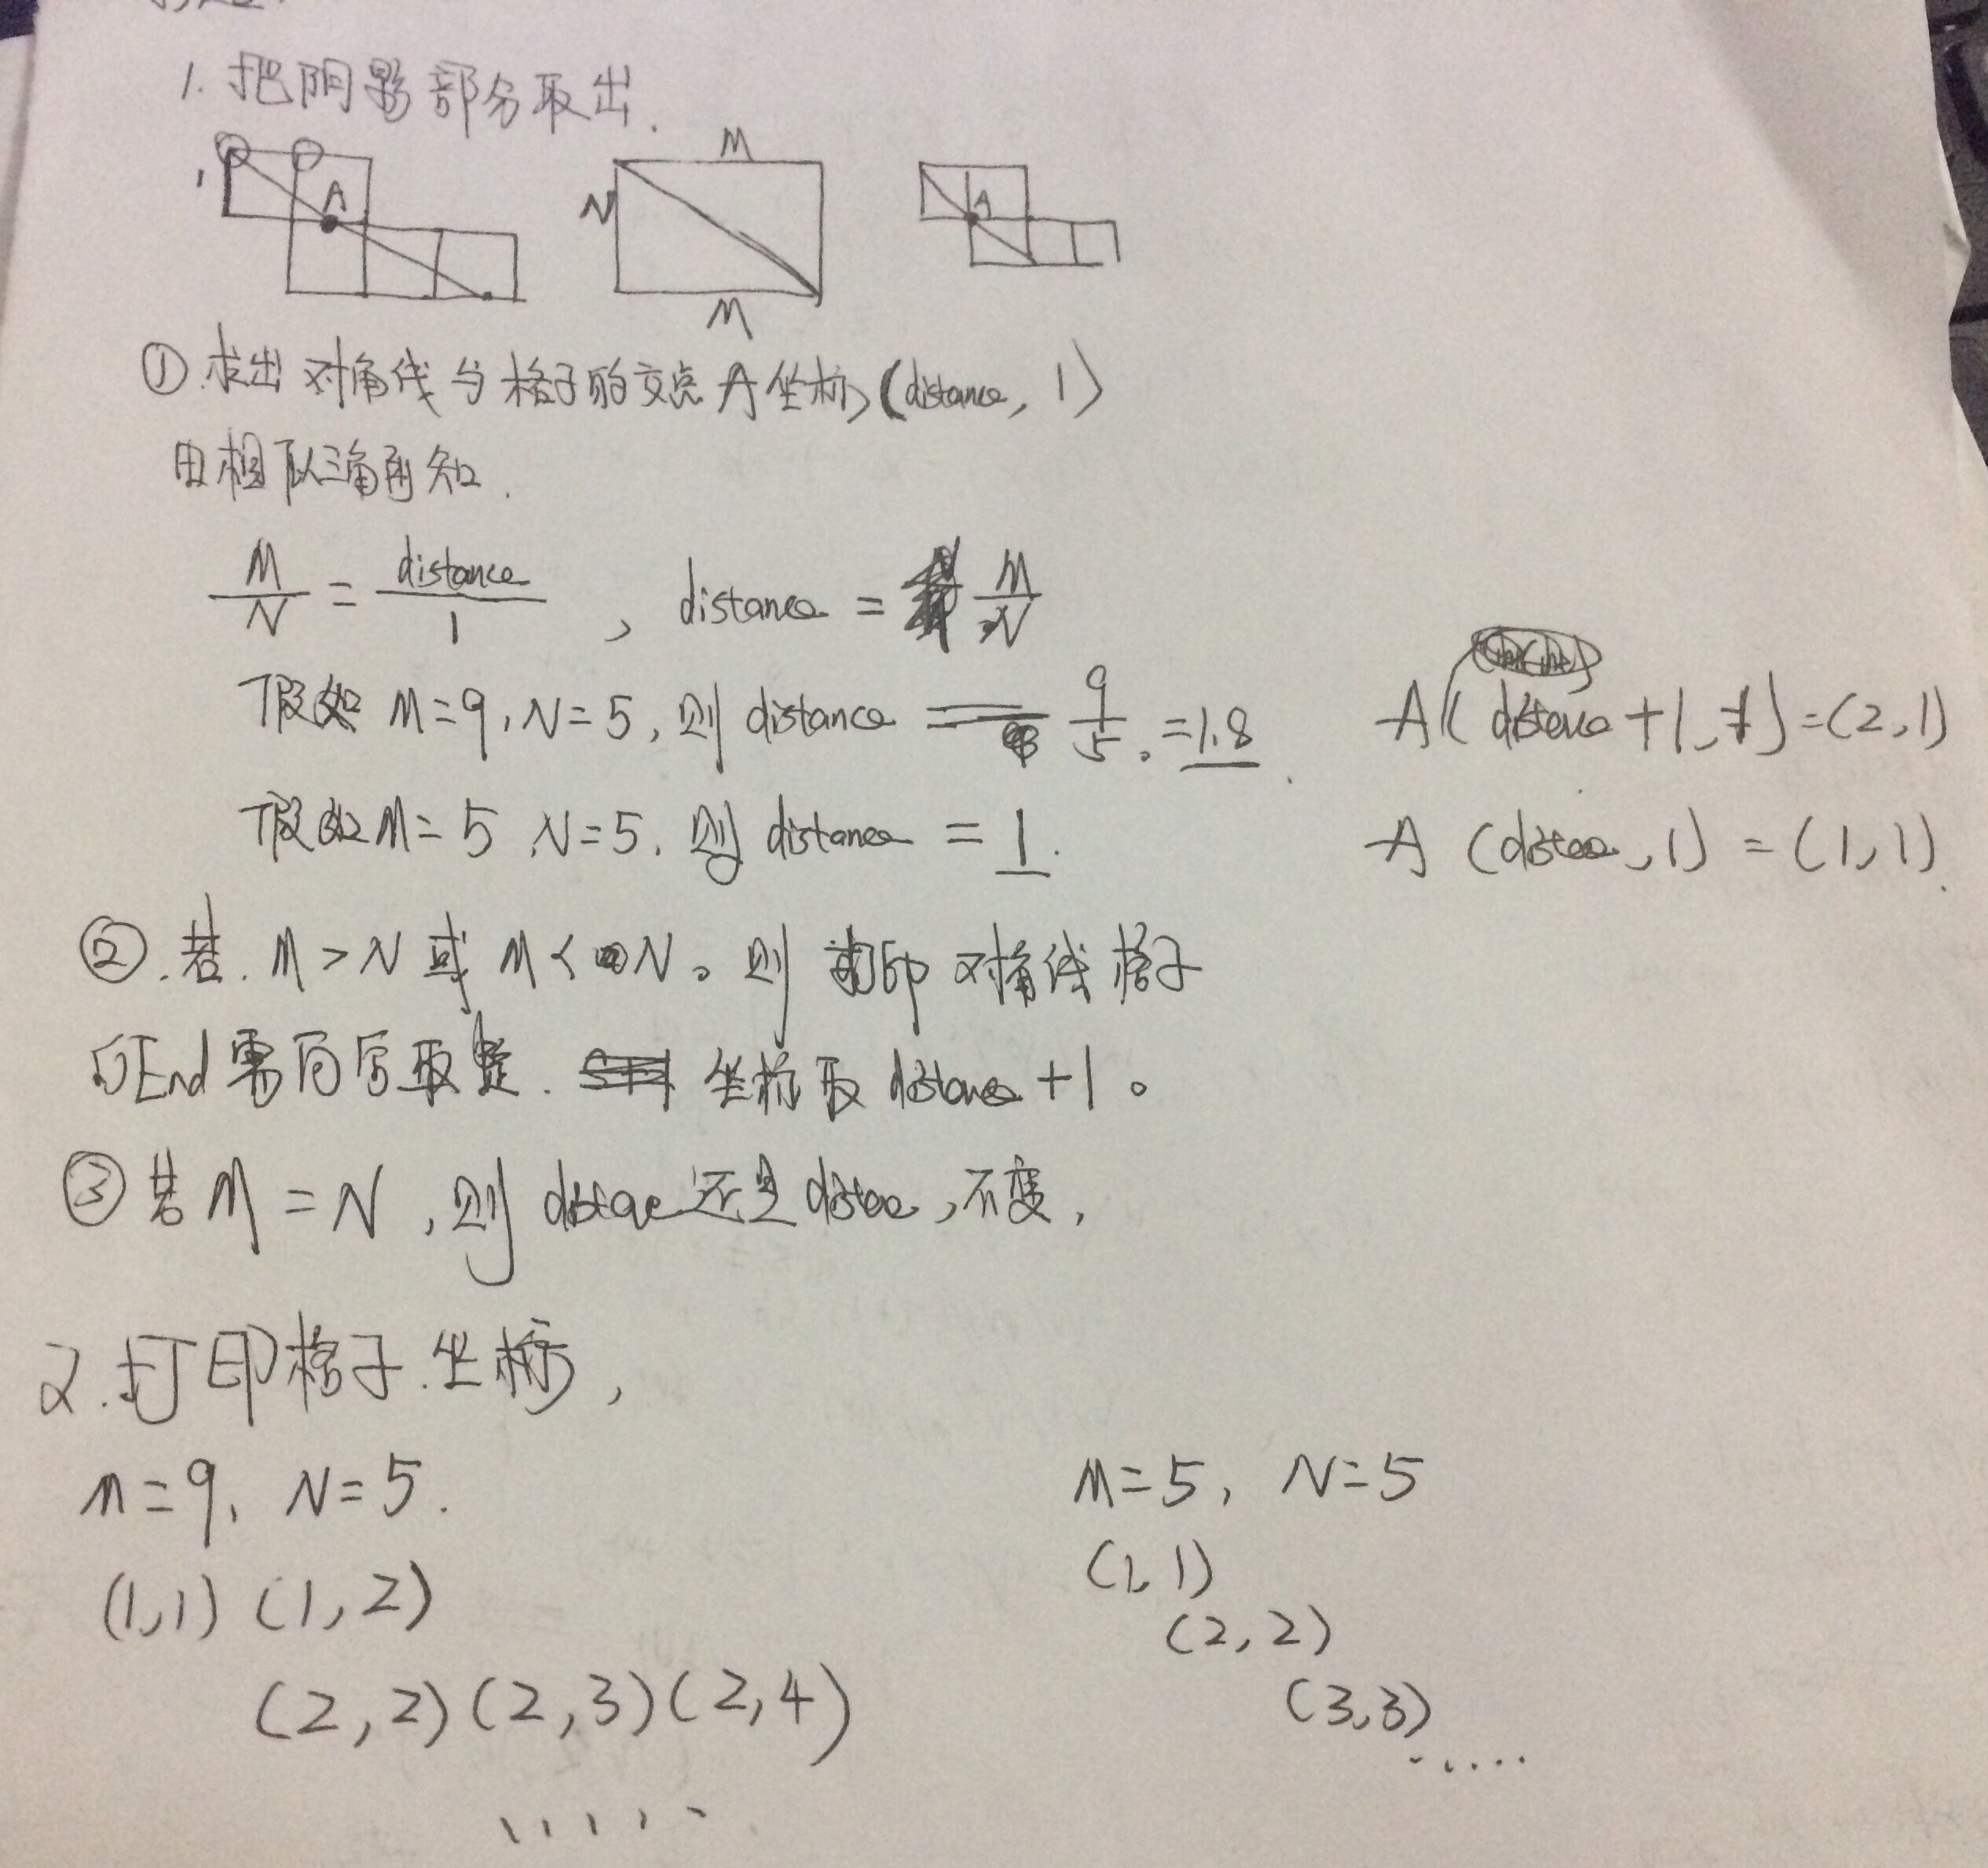 1. 把阴影部分取出.
1 A
M
N
M
A
① 求出对角线与格子的交点A坐标(distance, 1)
由相似三角形知.
M/N = distance/1 , distance = M/N
假如 M=9, N=5, 则 distance = 9/5. =1.8. A(distance+1, 1)=(2,1)
假如 M=5 N=5, 则 distance = 1. A (distance, 1) = (1,1).
②. 若. M>N 或 M<N。则 打印 对角线格子
的End需向后取整. 坐标取 distance+1。
③ 若 M=N, 则 distance还是distance, 不变,
2.打印格子.坐标,
M=9, N=5.
(1,1) (1,2)
(2,2) (2,3) (2,4)
.....
M=5, N=5
(1,1)
(2,2)
(3,3)
.....